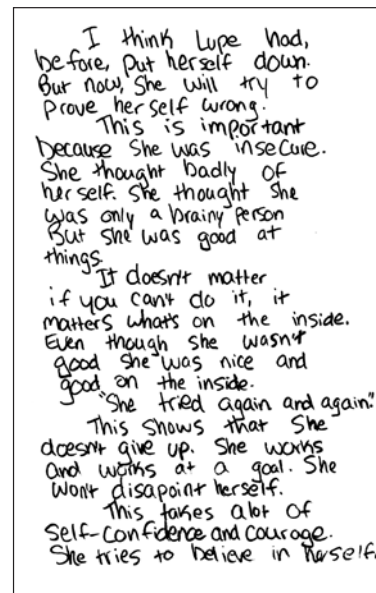 I think Lupe had,
before, put herself down.
But now, She will try to
prove her self wrong.
This is important
because she was insecure.
She thought badly of
her self. She thought she
was only a brainy person
But she was good at
things.
It doesn't matter
if you can't do it, it
matters what's on the inside.
Even though she wasn't
good she was nice and
good on the inside.
"She tried again and again."
This shows that she
doesn't give up. She works
and works at a goal. She
won't disapoint herself.
This takes alot of
self-confidence and courage.
She tries to believe in herself.